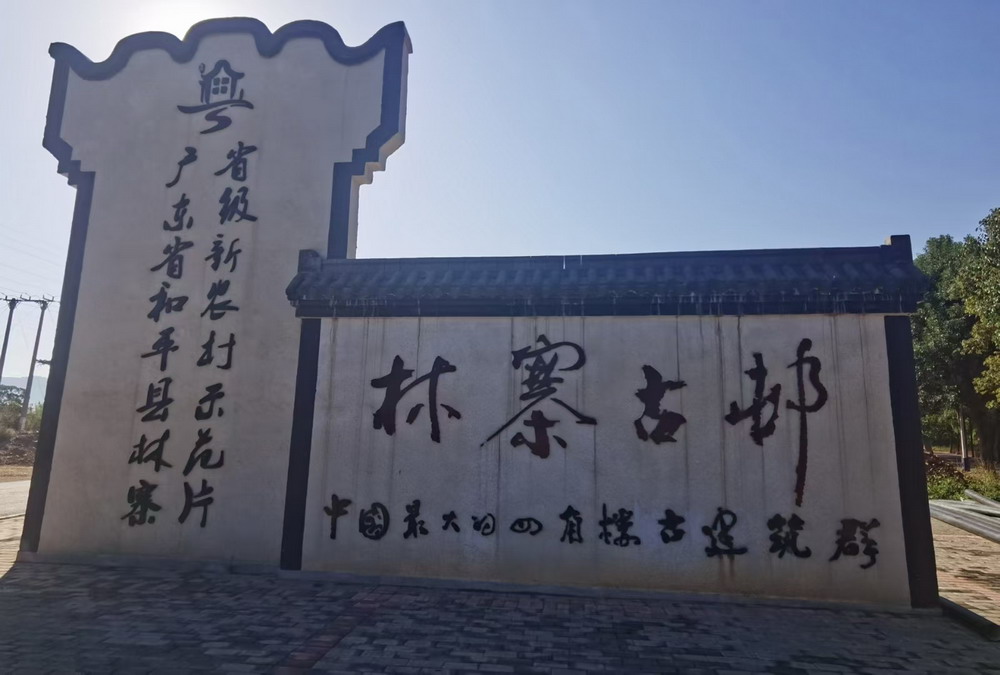 广东省和平县林寨
省级新农村示范片
林寨古邨
中國最大的四角楼古建筑群